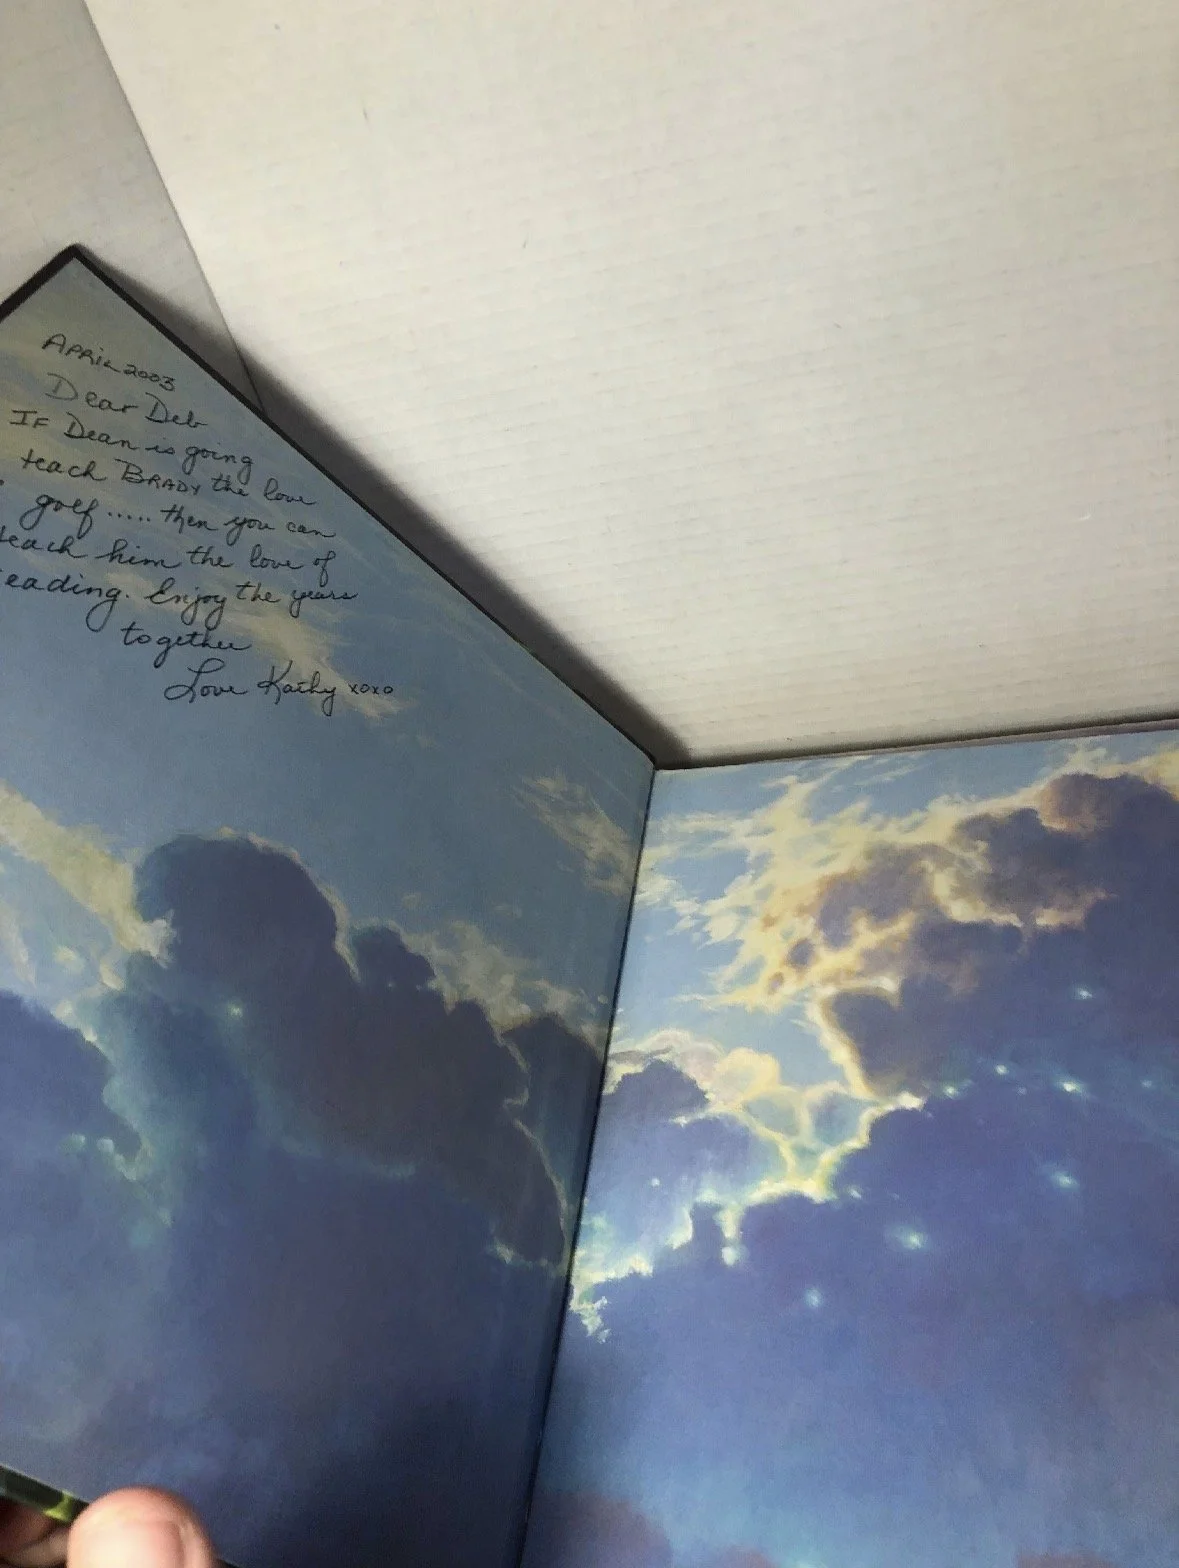 APRIL 2003
Dear Deb
IF Dean is going
teach BRADY the love
golf ..... then you can
teach him the love of
eading. Enjoy the years
together
Love Kathy xoxo